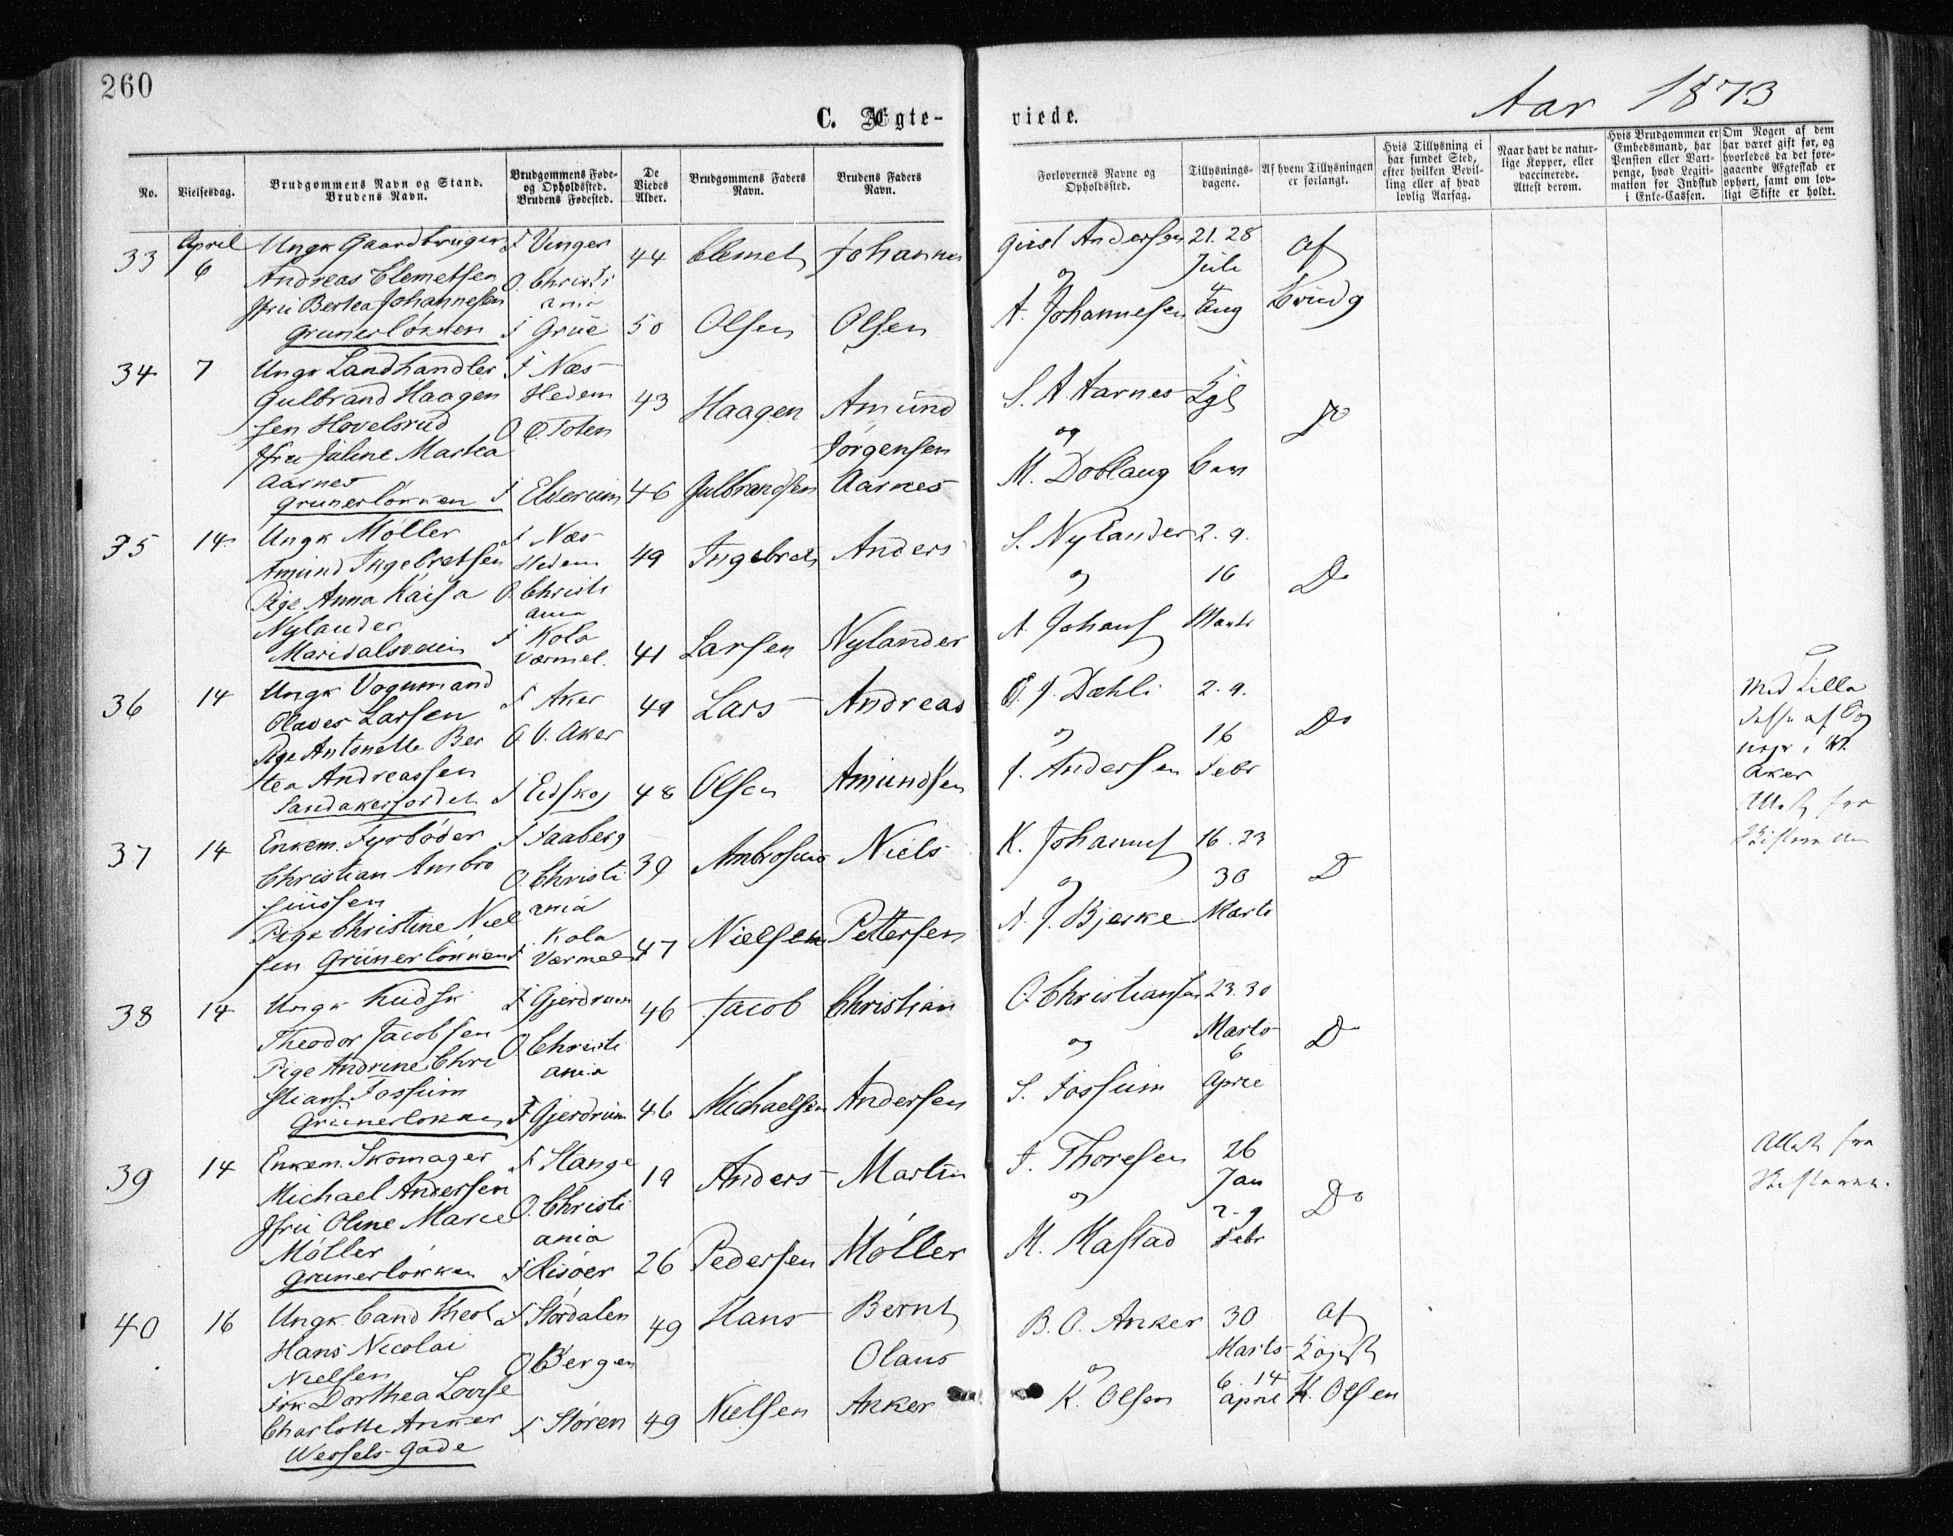 260
C. Ægte-
viede.
Aar 1873
No.
Vielsesdag.
Brudgommens Navn og Stand.
Brudens Navn.
Brudgommens Føde-
og Opholdssted.
Brudens Fødested.
De
Viedes
Alder.
Brudgommens Faders
Navn.
Brudens Faders
Navn.
Forlovernes Navne og
Opholdssted.
Tillysnings-
dagene.
Af hvem Tillysningen
er forlangt.
Hvis Tillysning ei
har fundet Sted,
efter hvilken Bevil-
ling eller af hvad
lovlig Aarsag.
Naar havt de natur-
lige Kopper, eller
vaccinerede.
Attest derom.
Hvis Brudgommen er
Embedsmand, har
Pension eller Vart-
penge, hvad Legiti-
mation for Indskud
i Enke-Cassen.
Om Nogen af dem
har været gift før, og
hvorledes da det fore-
gaaende Ægteskab er
ophørt, samt om lov-
ligt Skifte er holdt.
33
April
6
Ungk Gaardbruger
Andreas Clemetsen
Jfru Bertea Johannesen
Grunerløkken
F Vinger
O. Christi
ania
F Grue
44
50
Clemet
Olsen
Johannes
Olsen
Andersen
og
A. Johannesen
21. 28
Juli
4
Aug
af
Brudg
34
7
Ungk Landhandler
Gulbrand Haagen
sen Hovelsrud
Jfru Juline Martea
Aarnes
Grunerløkken
F Næs
Hedem
O Ø. Toten
F Elverum
43
46
Haagen
Gulbrandsen
Amund
Jørgensen
Aarnes
S. A. Aarnes
og
M. Doblaug
Kgl
Do
35
14
Ungk Møller
Amund Ingebretsen
Pige Anna Kaisa
Nylander
Maridalsveien
F Næs
Hedem
O. Christi
ania
F Kola
Værmel.
49
41
Ingebret
Larsen
Anders
Nylander
S. Nylander
og
A. Johans
2. 9.
16
Marts
Do
36
14
Ungk Vognmand
Olaves Larsen
Pige Antonette Ber
tea Andreassen
Sandakerjordet
F Aker
O V. Aker
F Eidskog
49
48
Lars
Olsen
Andreas
Amundsen
J. Dæhli
og
J. Andersen
2. 9.
16
Febr
Do
Med Tilla
delse af
Aker
37
14
Enkem. Fyrbøder
Christian Ambro
siussen
Pige Christine Niel
sen Grünerløkken
F Faaberg
O. Christi
ania
F. Kola
Værmel
39
47
Ambrosius
Nielsen
Niels
Pettersen
K. Johannes
og
A. J. Bjerke
16. 23
30
Marts
D
Attest fra
Skifteretten
38
14
Ungk Kudsk
Theodor Jacobsen
Pige Andrine Chri
stians Fossum
Grünerløkken
F Gjerdrum
O Christi
ania
F Gjerdrum
46
46
Jacob
Michaelsen
Christian
Andersen
O. Christiansen
og
S. Fossum
23. 30
Marts
6
April
Do
39
14
Enkem. Skomager
Michael Andersen
Jfru Oline Marie
Møller
Grunerløkken
F Stange
O. Christi
ania
F Risøer
19
26
Anders
Pedersen
Martin
Møller
J. Thoresen
og
M. Mastad
26
Jan
2. 9
Febr
Do
Attest fra
Skifteretten.
40
16
Ungk. Cand theol
Hans Nicolai
Nielsen
Frk Dorthea Lovise
Charlotte Anker
Wessels Gade
F Størdalen
O Bergen
F Støren
49
49
Hans
Nielsen
Bernt
Olaus
Anker
B. O. Anker
og
K. Olsen
30
Marts
6. 14
April
af
K. Olsen